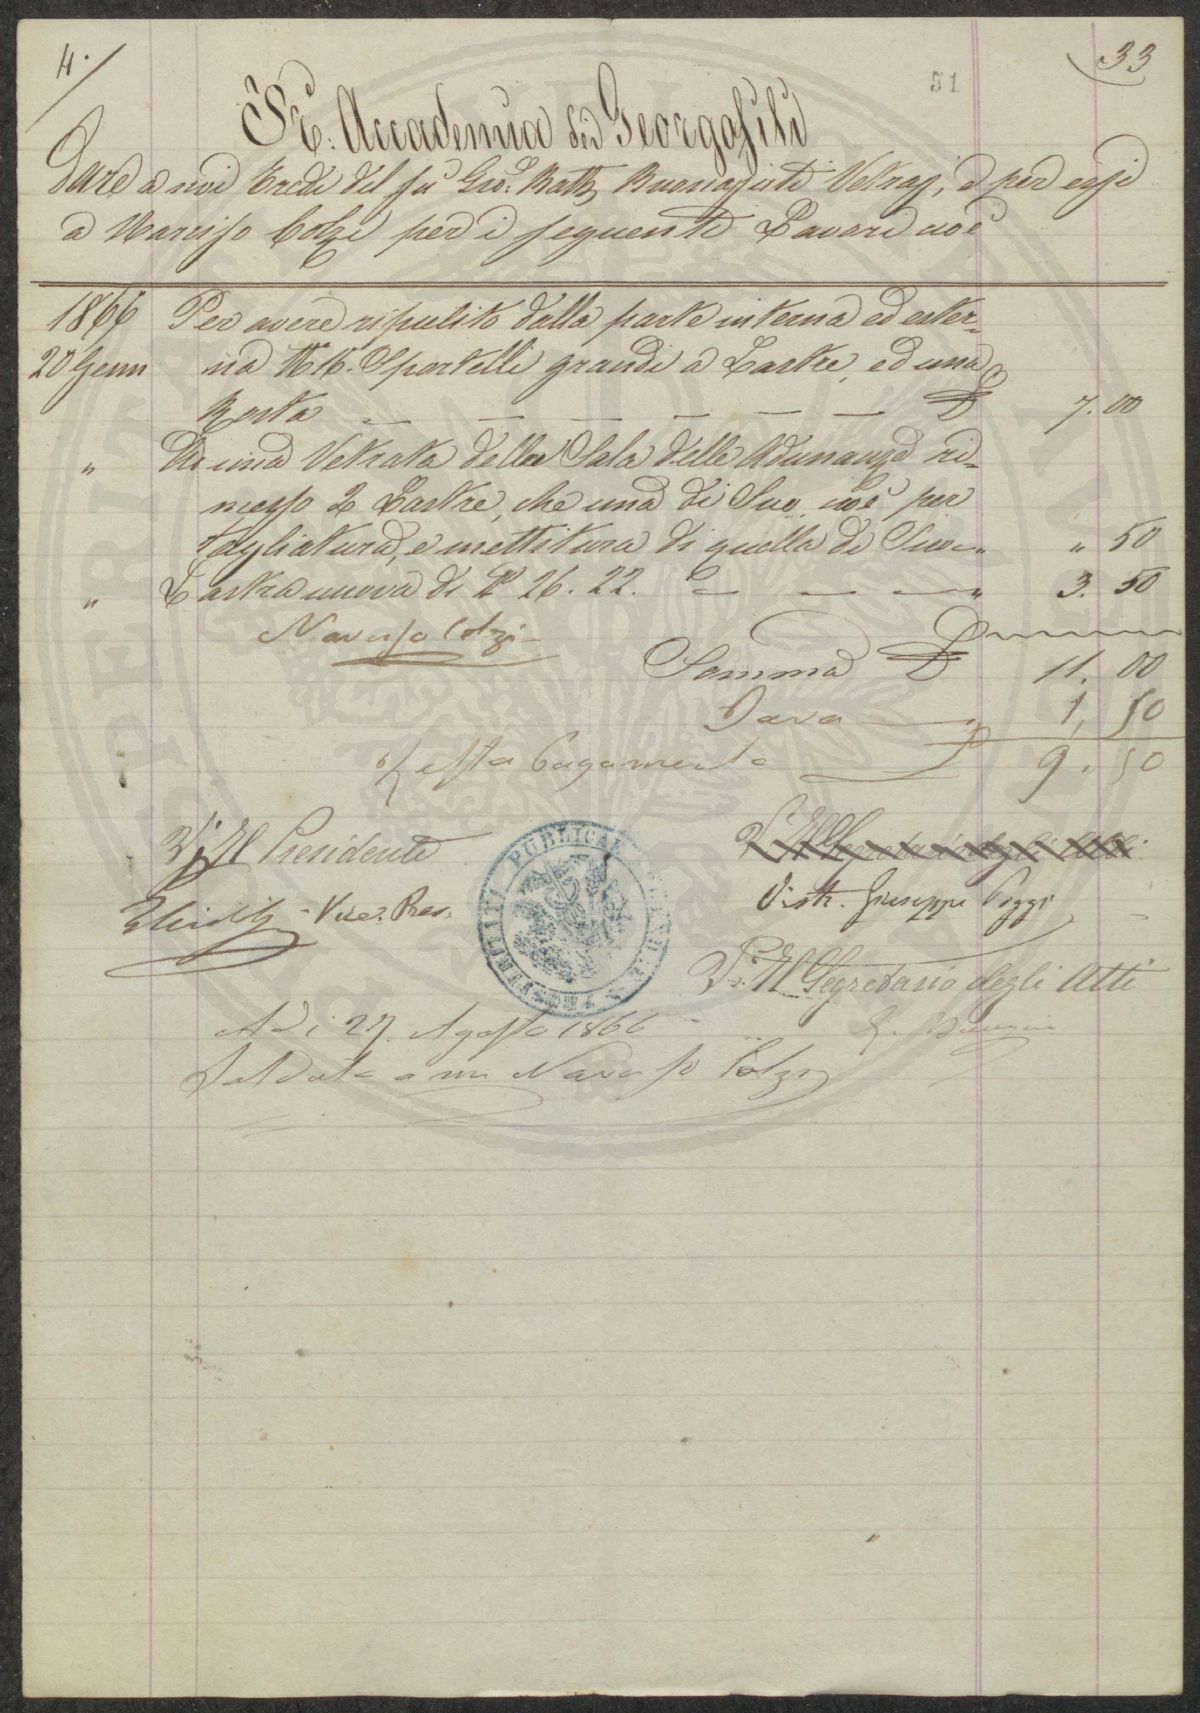 4. 33
51
R. Accademia dei Georgofili
Dare a noi Eredi del fu Gio. Batta Buonajuti Vetraj, e per essi
a Narcisso Colzi per i seguenti Lavori cioè
1866 Per avere ripulito dalla parte interna ed ester-
20 Genn na Sportelli grandi a Lastre, ed una
Rosta — — — — — — £ 7. 00
" Da una Vetrata della Sala delle Adunanze ri-
messo 2 Lastre, che una di Suo, cioè per
tagliatura, e mettitura di quella di Suo " " 50
" Lastra nuova di 26. 22. — — — " 3. 50
Narcisso Colzi
Somma £ 11. 00
Tara 1, 50
Resta Pagamento £ 9. 50
V. Il Presidente V. Il Segretario degli Atti
Vice. Pres. Visto. Giuseppe Poggi
V. Il Segretario degli Atti
PUBLICAE
A dì 27. Agosto 1866
Saldato a me Narcisso Colzi